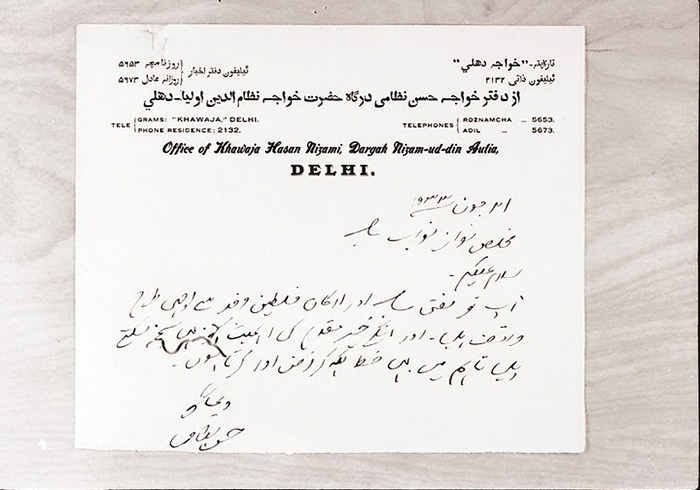 تارکاپتہ۔ "خواجہ دهلي"
ٹیلیفون ذاتی ۲۱۳۲
ٹیلیفون دفتر اخبار
روزنامچہ ۵۶۵۳
روزانہ عادل ۵۶۷۳
از دفتر خواجہ حسن نظامی درگاہ حضرت خواجہ نظام الدین اولیا۔دهلي
TELE
GRAMS: "KHAWAJA," DELHI.
PHONE RESIDENCE: 2132.
TELEPHONES
ROZNAMCHA ... 5653.
ADIL ... 5673.
Office of Khawaja Hasan Nizami, Dargah Nizam-ud-din Aulia,
DELHI.
۲۱ جون
مخلص نواز نواب صاحب
سلام علیکم۔
آپ تو مفتی صاحب اور ارکان فلسطین وفد سے اچھی طرح
واقف ہیں۔ اور انکے خیر مقدم کی اہمیت
ہیں تاہم میں بھی خط لکھ کر فرض ادا کرتا ہوں۔
حسن نظامی